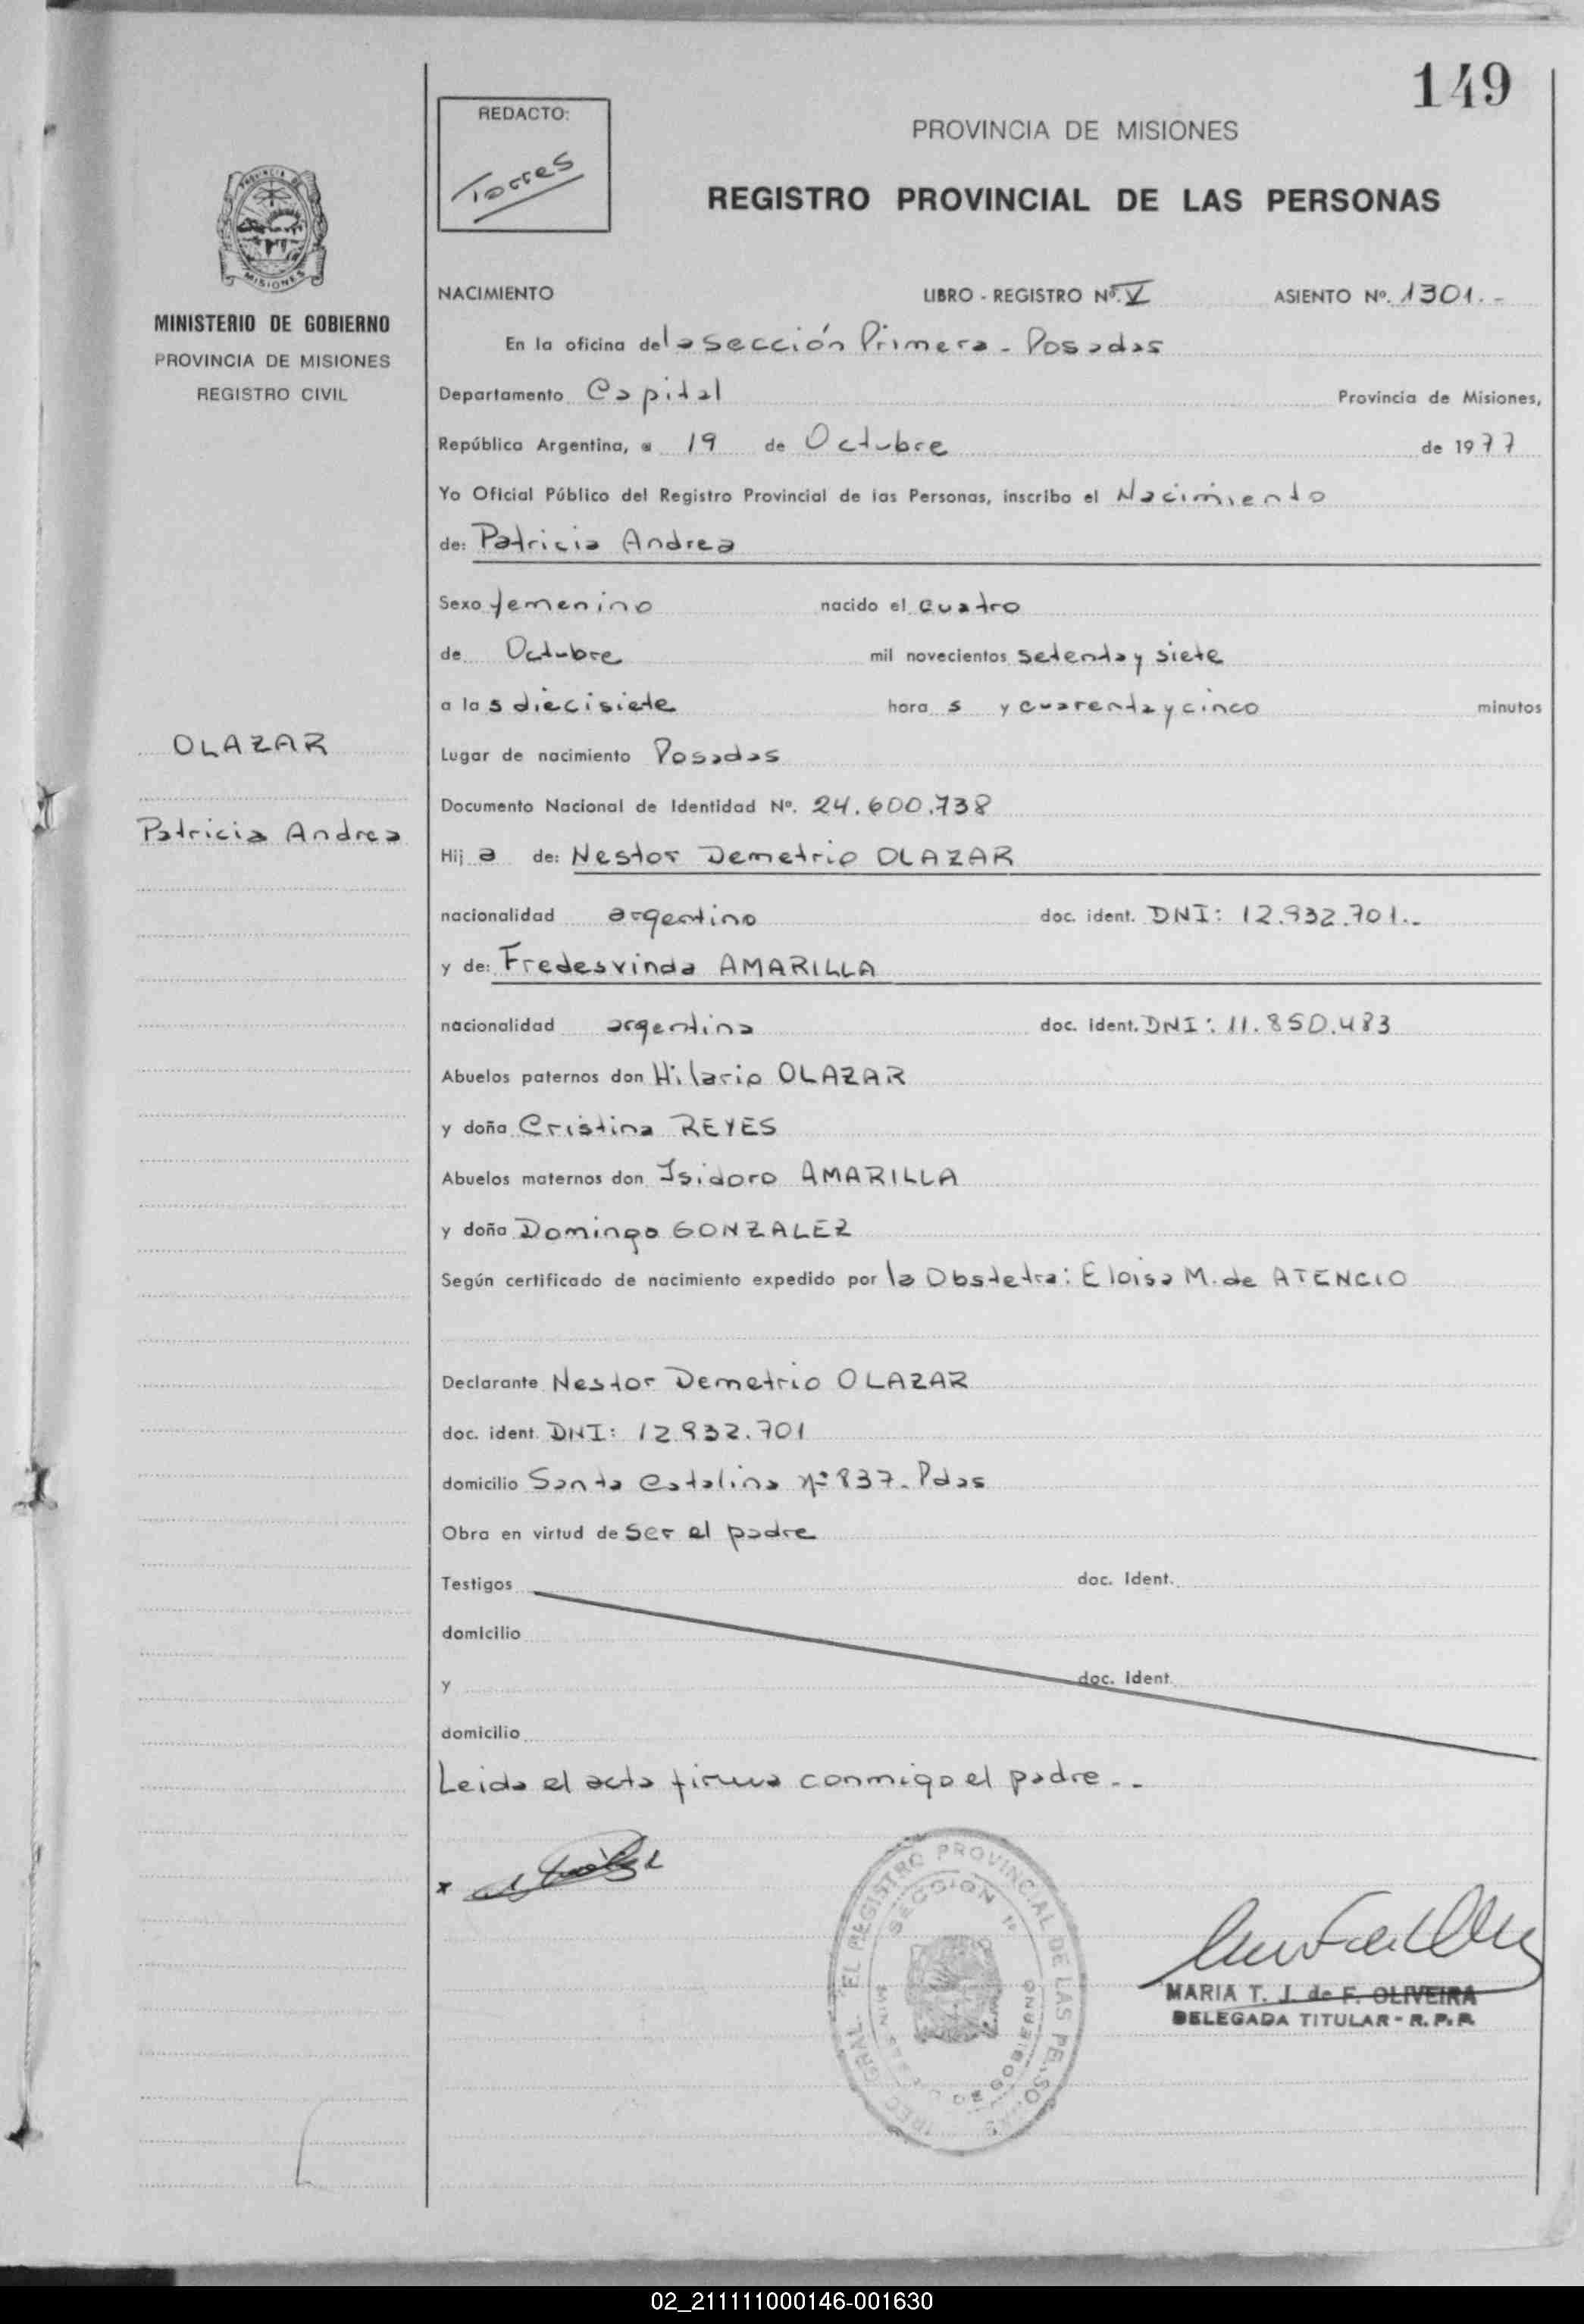 149
REDACTO:
Torres
PROVINCIA DE MISIONES
REGISTRO PROVINCIAL DE LAS PERSONAS
PROVINCIA DE
MISIONES
MINISTERIO DE GOBIERNO
PROVINCIA DE MISIONES
REGISTRO CIVIL
NACIMIENTO LIBRO - REGISTRO Nº. V ASIENTO Nº. 1301.-
En la oficina de la sección Primera - Posadas
Departamento Capital Provincia de Misiones,
República Argentina, a 19 de Octubre de 1977
Yo Oficial Público del Registro Provincial de las Personas, inscribo el Nacimiento
de: Patricia Andrea
Sexo femenino nacido el cuatro
de Octubre mil novecientos setenta y siete
a las diecisiete horas y cuarenta y cinco minutos
OLAZAR
Patricia Andrea
Lugar de nacimiento Posadas
Documento Nacional de Identidad Nº. 24.600.738
Hija de: Nestor Demetrio OLAZAR
nacionalidad argentino doc. ident. DNI: 12.932.701.-
y de: Fredesvinda AMARILLA
nacionalidad argentina doc. ident. DNI: 11.850.483
Abuelos paternos don Hilario OLAZAR
y doña Cristina REYES
Abuelos maternos don Isidoro AMARILLA
y doña Dominga GONZALEZ
Según certificado de nacimiento expedido por la Obstetra: Eloisa M. de ATENCIO
Declarante Nestor Demetrio OLAZAR
doc. ident. DNI: 12.932.701
domicilio Santa Catalina Nº 837. Pdas
Obra en virtud de ser el padre
Testigos doc. Ident.
domicilio
y doc. Ident.
domicilio
Leida el acta firma conmigo el padre.-
x
EL REGISTRO PROVINCIAL DE LAS
SECCION 1ª
DE GOBIERNO
MARIA T. J. de F. OLIVEIRA
DELEGADA TITULAR - R. P. P.
02_211111000146-001630